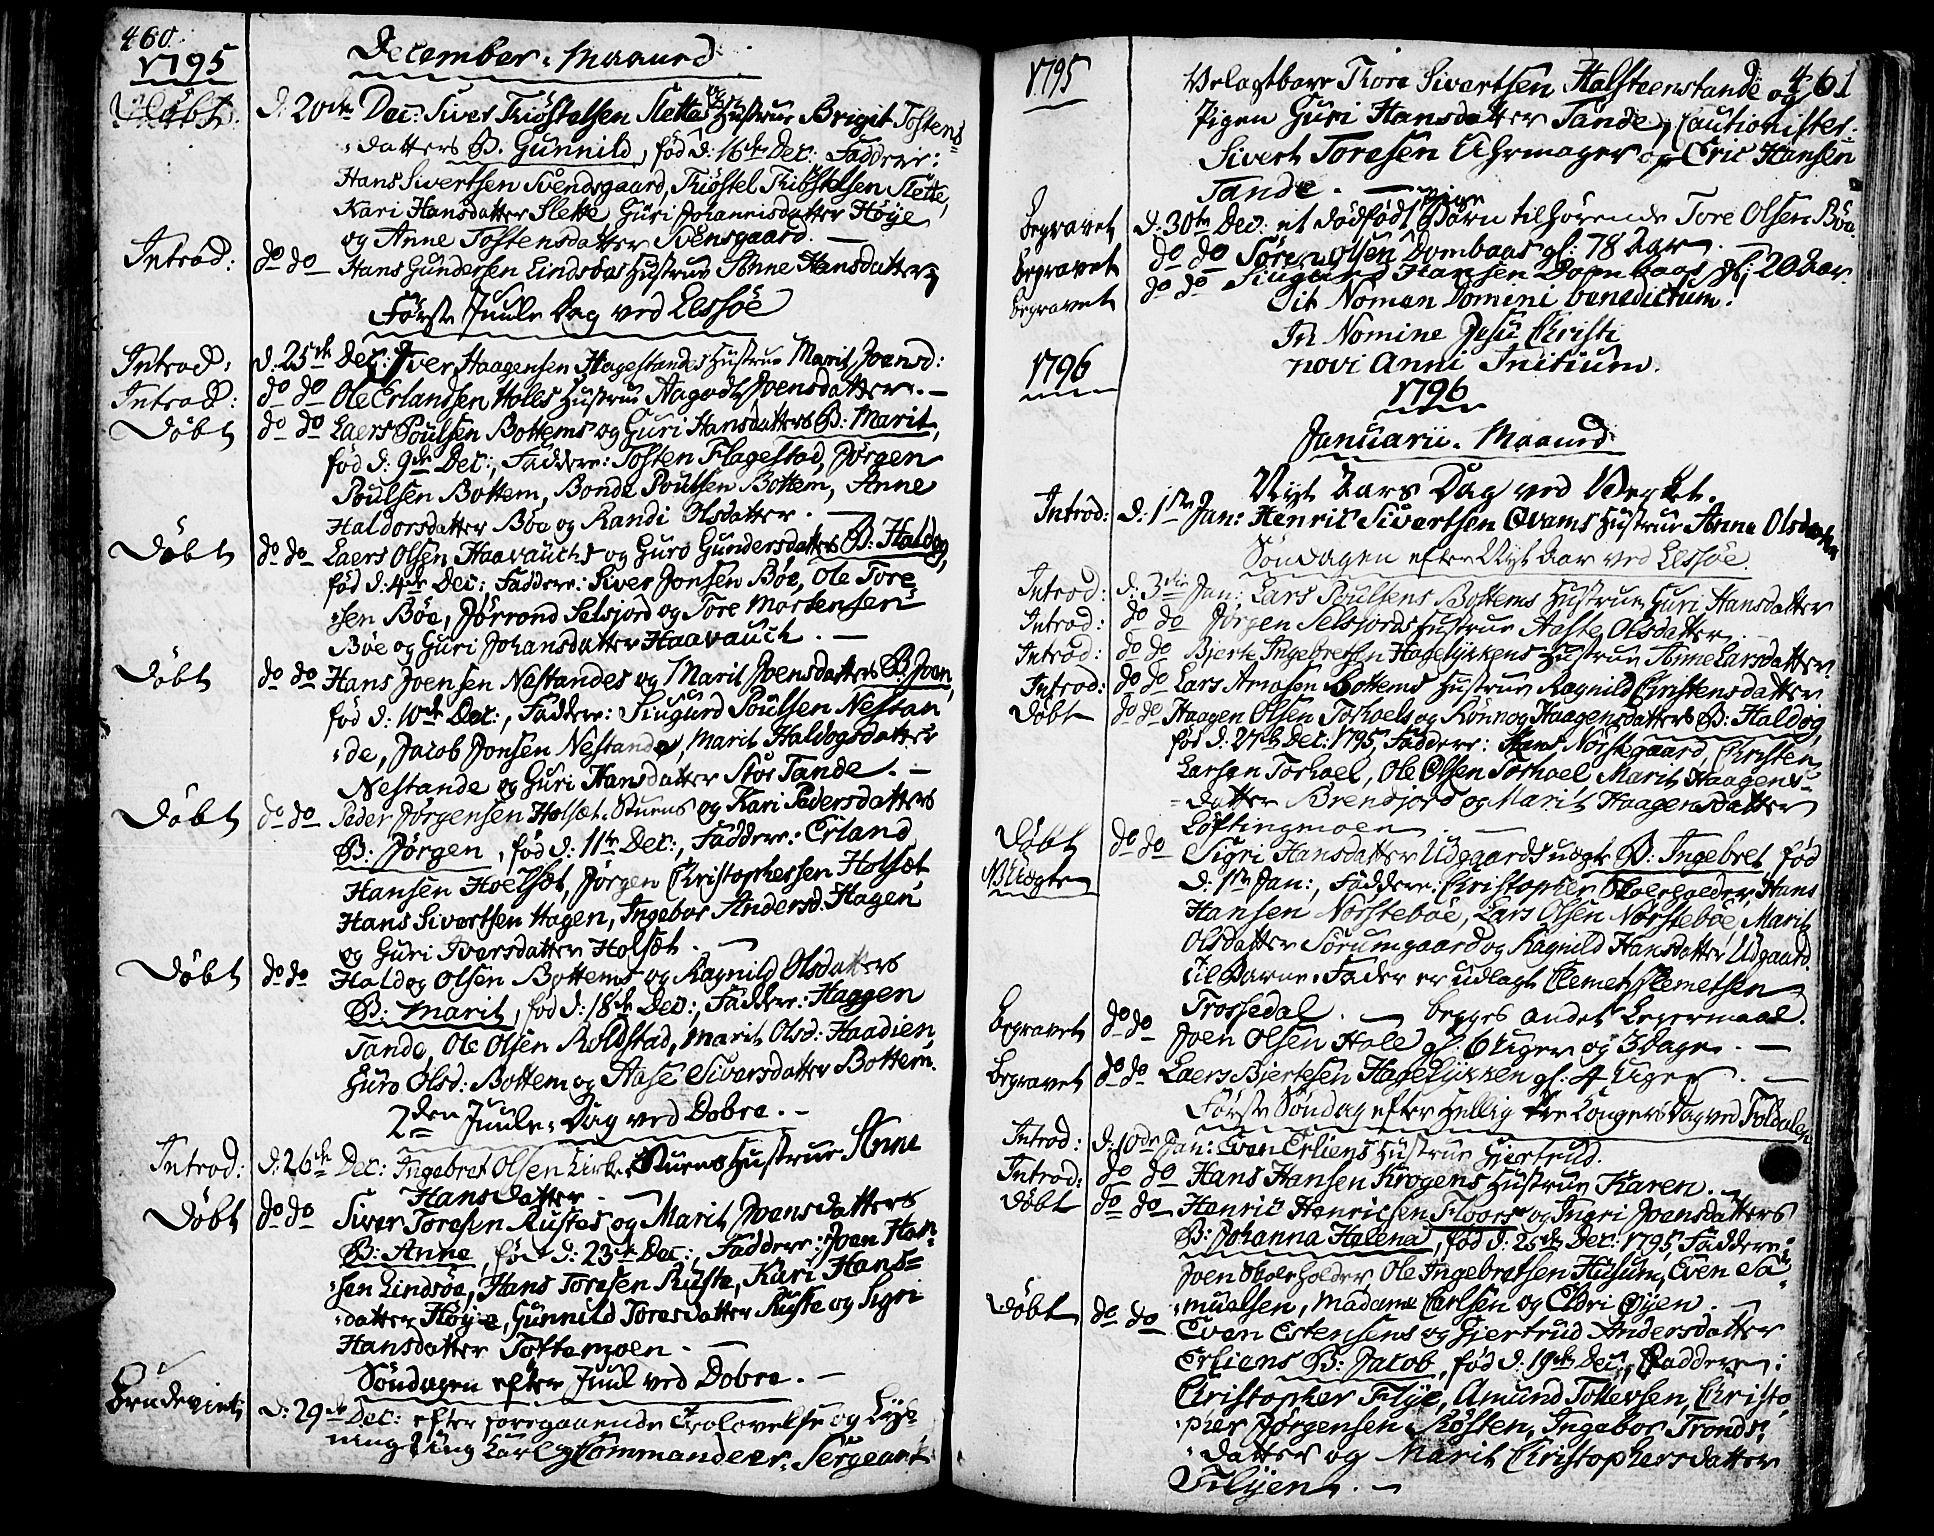 460.
1795
December-Maaned
Døbt. D: 20de Dec: Siver Thiøstelsen Slettes og Hustrue Brigit Tostens
datters B. Gunnild, fød d: 16de Dec: Faddere:
Hans Sivertsen Svendsgaard, Thiøstel Thiøstelsen Slette,
Kari Hansdatter Slette Guri Johannisdatter Høye
og Anne Tostensdatter Svensgaard. —
Introd: do do Hans Gundersen Lindsøes Hustrue Anne Hansdatter
Første Juule Dag ved Lessøe
Introd: d: 25de Dec: Iver Haagensen Hagestandes Hustrue Marit Joensd:
Introd: do do Ole Erlandsen Holes Hustrue Aagodt Joensdatter. —
Døbt do do Laers Poulsen Bottems og Guri Hansdatters B: Marit,
fød d: 9de Dec:, Faddere: Tosten Flagestad, Jørgen
Poulsen Bottem, Bonde Poulsen Bottem, Anne
Haldorsdatter Bøe og Randi Olsdatter. —
Døbt do do Laers Olsen Haavauchs og Guro Gundersdatters B: Haldog,
fød d: 4de Dec: Faddere: Siver Jonsen Bøe, Ole Tore
sen Bøe, Jørrond Selsjord og Tore Mortensen
Bøe og Guri Johansdatter Haavauch. —
Døbt do do Hans Joensen Nestandes og Marit Joensdatters B: Joen,
fød d: 10de Dec:, Faddere: Siugurd Poulsen Nestan
de, Jacob Jonsen Nestande, Marit Haldogsdatter
Nestande og Guri Hansdatter Stor Tande. —
Døbt do do Peder Jørgensen Holsæt-Stuens og Kari Pedersdatters
B: Jørgen, fød d: 11te Dec:, Faddere: Erland
Hansen Hoelsæt, Jørgen Christophersen Holsæt
Hans Sivertsen Hagen, Ingebor Andersd: Hagen
og Guri Iversdatter Holsæt. —
Døbt do do Haldog Olsen Bottems og Ragnild Olsdatters
B: Marit, fød d: 18de Dec:, Faddere: Haagen
Tande, Ole Olsen Roldstad, Marit Olsd: Haadien
Guro Olsd: Bottem og Aase Siversdatter Bottem.
2den Juule-Dag ved Dobre. —
Introd: d: 26de Dec: Ingebret Olsen Kirke Stuens Hustrue Anne
Hansdatter. —
Døbt do do Siver Toresen Rustes og Marit Joensdatters
B: Anne, fød d: 23de Dec:, Faddere: Joen Han
sen Lindsøe, Hans Toresen Ruste, Kari Hans
datter Høye, Gunnild Toresdatter Ruste og Sigri
Hansdatter Toftemoen. —
Søndagen efter Juul ved Dobre. —
Brudeviet d: 29de Dec: efter foregaaende Trolovelse og Lys
ning Ung Karl og Commandeer-Sergeant
1795
461
Velagtbare Thore Sivertsen Halsteenstande og
Pigen Guri Hansdatter Tande, Cautionister:
Sivert Toresen Uhrmager og Eric Hansen
Tande. —
Begravet d: 30te Dec: et dødfødt Pige Barn tilhørende Tore Olsen Bøe.
Begravet do do Søren Olsen Dombaas gl: 78 Aar —
Begravet do do Siugurd Hansen Dombaas gl: 20 Aar.
Sit Nomen Domini benedictum!
In Nomine Jesu Christi
novi Anni Initium.
1796
1796
Januarii-Maaned
Nyt Aars Dag ved Verket.
Introd: d: 1ste Jan: Henric Sivertsen Qvams Hustrue Anne Olsdatter
Søndagen efter Nyt Aar ved Lessøe.
Introd: d: 3die Jan: Lars Poulsens Bottems Hustrue Guri Hansdatter
Introd: do do Jørgen Selsjords Hustrue Aaste Olsdatter
Introd: do do Bjerte Ingebretsen Hagelykkens Hustrue Anne Larsdatter.
Introd: do do Lars Arnesen Bottems Hustrue Ragnild Christensdatter
Døbt do do Haagen Olsen Torhoels og Rønnog Haagensdatters B: Haldog,
fød d: 27de Dec: 1795, Faddere: Hans Norstegaard, Christen
Larsen Torhoel, Ole Olsen Torhoel Marit Haagens
datter Brensjord og Marit Haagensdatter
Løftingmoen. —
Døbt do do Sigri Hansdatter Udgaards uægte B: Ingebret, fød
NB Uægte d: 1ste Jan:, Faddere: Christopher Skoleholder, Hans
Hansen Norstebøe, Lars Olsen Norstebøe, Marit
Olsdatter Sørumgaard og Ragnild Hansdatter Udgaard.
Til Barne-Fader er udlagt Clemet Clemetsen
Trossedal. — begges andet Legermaal.
Begravet do do Joen Olsen Hole gl: 6 Uger og 5 Dage. —
Begravet do do Laers Bjertesen Hagelykken gl: 4 Uger. —
Første Søndag efter Hellig tre Kongers Dag ved Foldalen
Introd: d: 10de Jan: Even Erliens Hustrue Gjertrud.
Introd: do do Hans Hansen Krogens Hustrue Karen. —
Døbt do do Henric Henricsen Floors og Ingri Joensdatters
B: Johanna Helena, fød d: 25de Dec: 1795, Faddere:
Joen Skoleholder, Ole Ingebretsen Husum, Even Sa
muelsen, Madame Carlsen og Eldri Øyen. —
Døbt do do Even Estensens og Gjertrud Andersdatter
Erliens B: Jacob, fød d: 19de Dec:, Faddere:
Christopher Flye, Amund Tollevsen, Christo
pher Jørgensen Røsten, Ingebor Tronds
datter og Marit Christophersdatter
Flyen. —